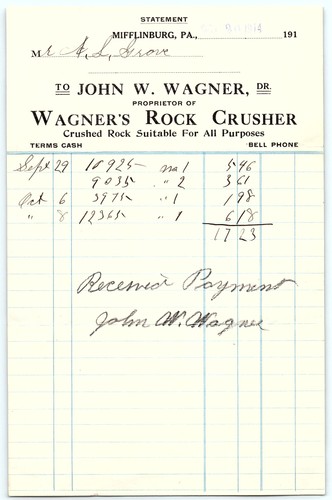 STATEMENT
MIFFLINBURG, PA., 1914 191
Mr A. S. Grove
TO JOHN W. WAGNER, DR.
PROPRIETOR OF
WAGNER'S ROCK CRUSHER
Crushed Rock Suitable For All Purposes
TERMS CASH BELL PHONE
Sept 29 10925 no 1 546
9035 " 2 361
Oct 6 3975 " 1 198
" 8 12365 " 1 618
1723
Received Payment
John W. Wagner